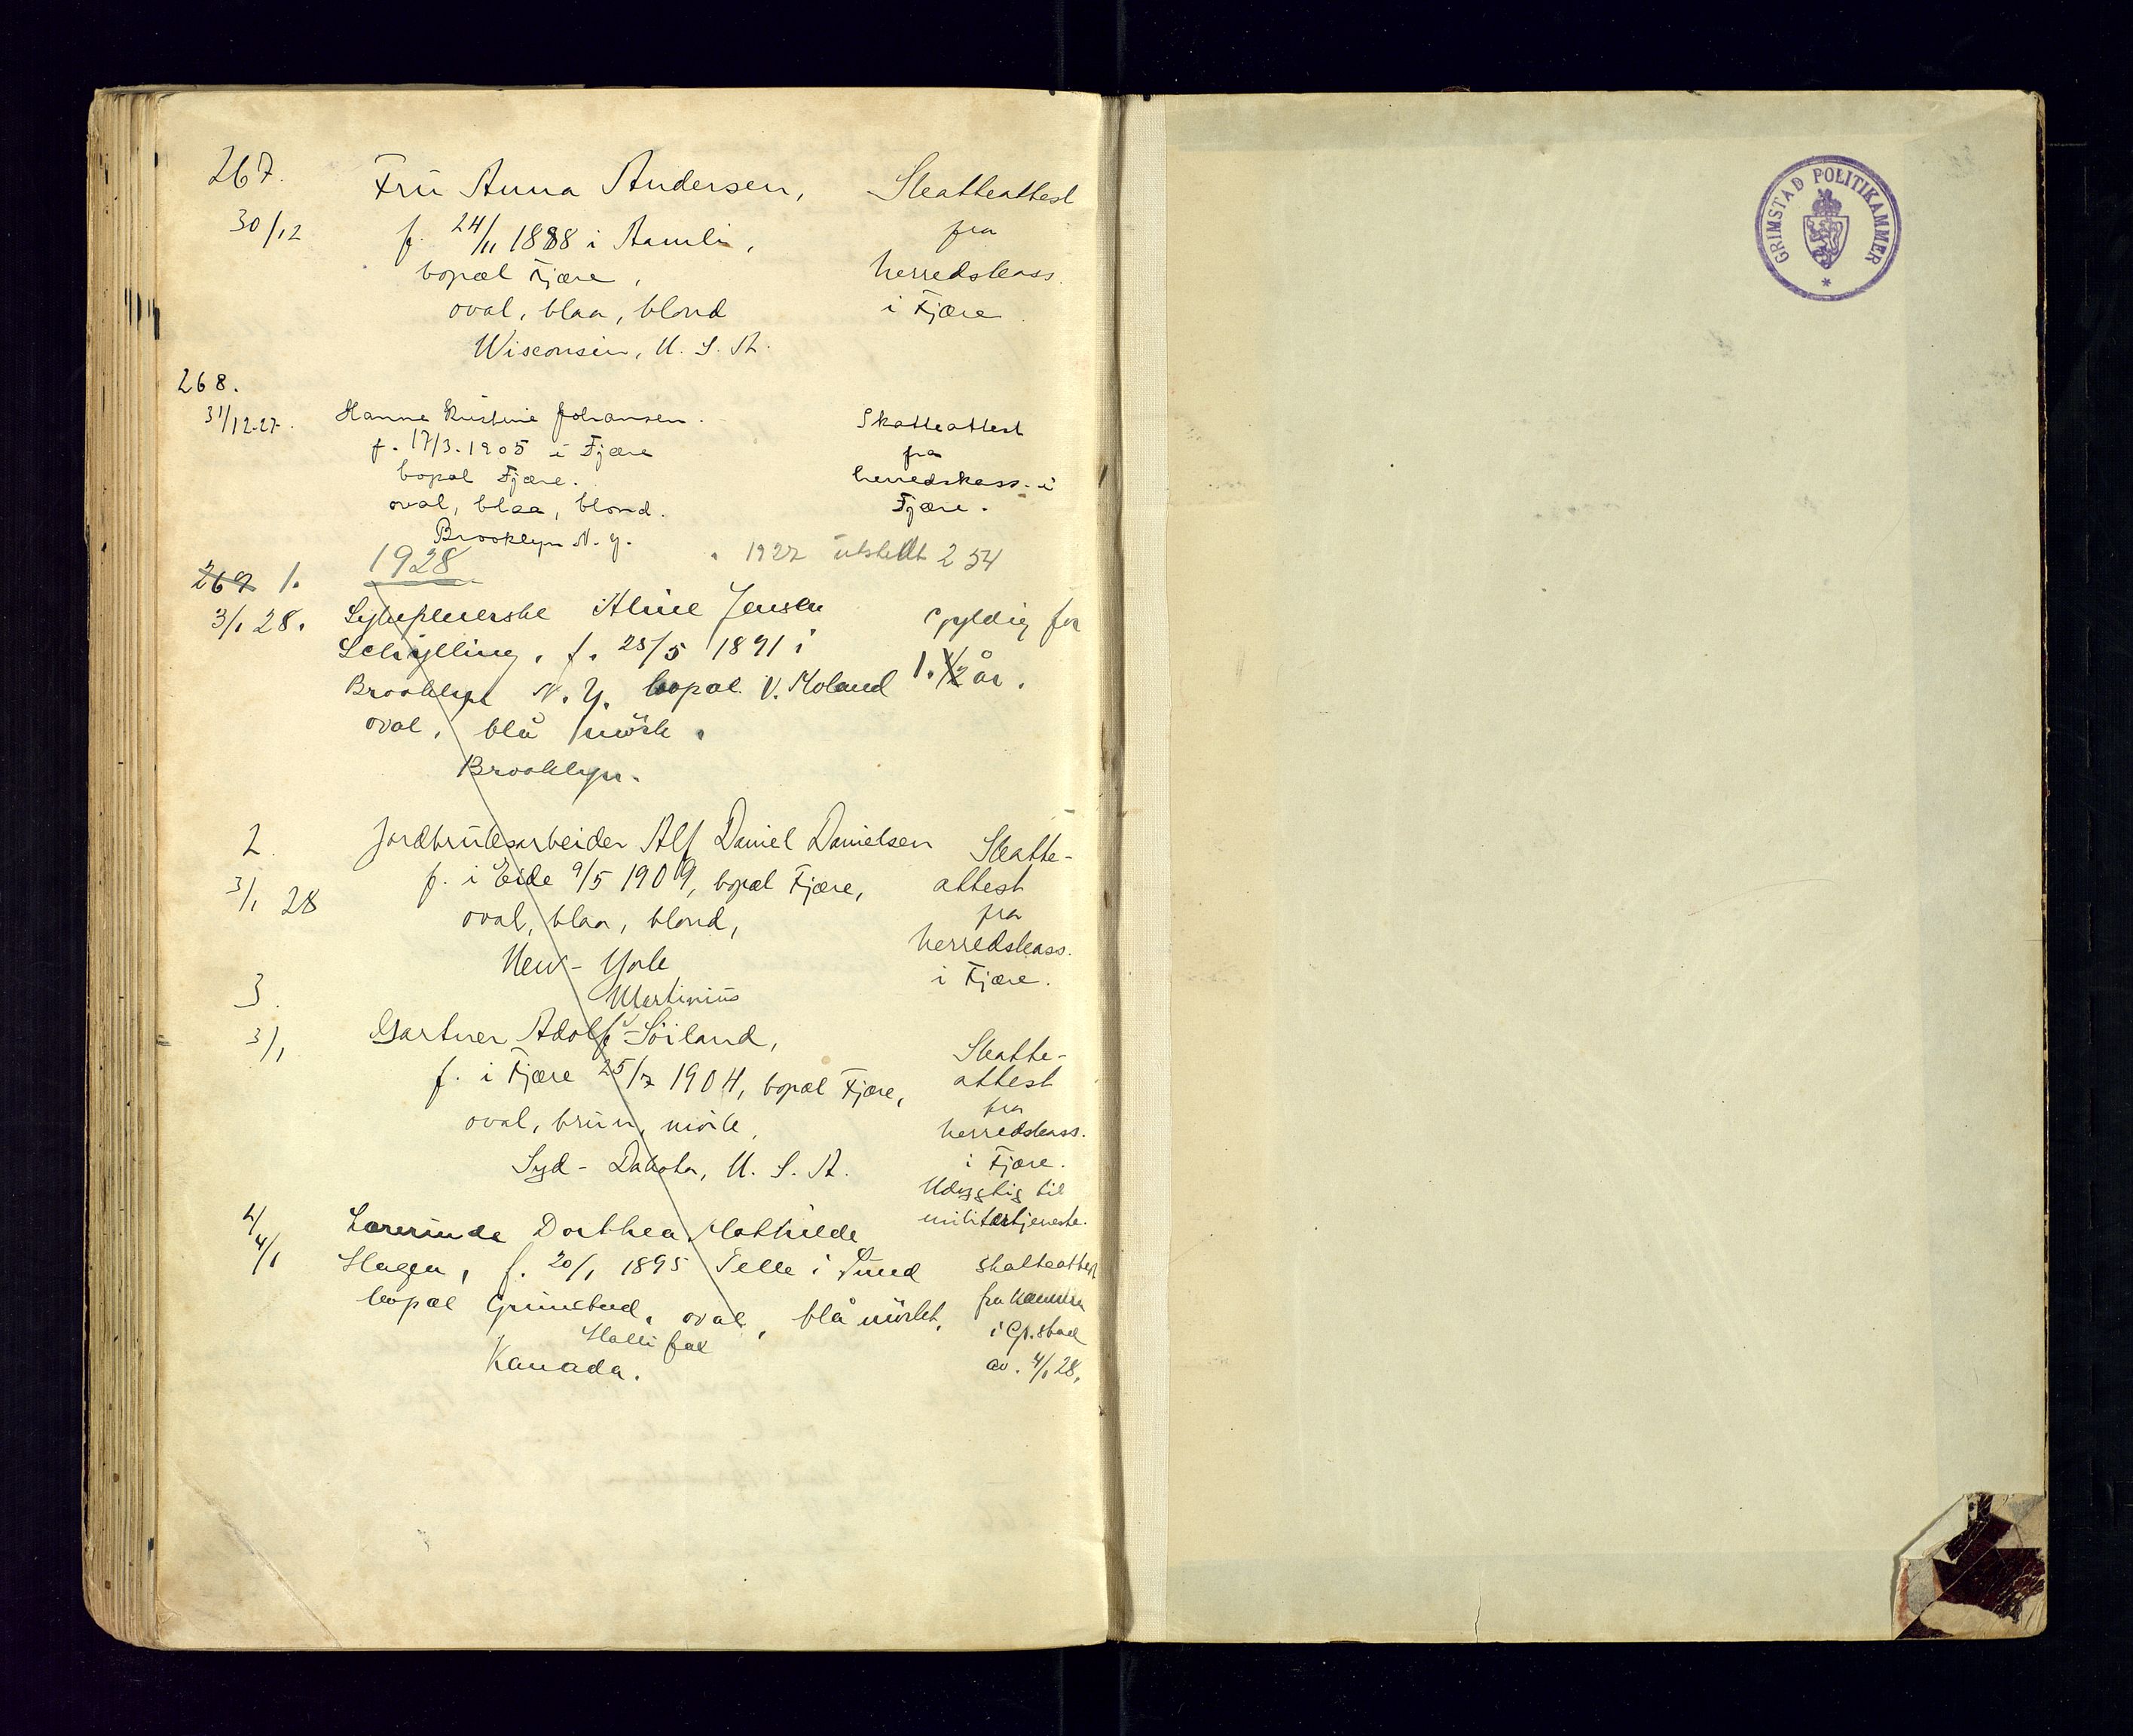 267.
Frü Anna Andersen,
Skatteattest
30/12
f. 24/11 1888 i Aamli,
fra
bopæl Fjære,
herredskass.
oval, blaa, blond
i Fjære
Wisconsin, U. S. A.
268.
31/12-27.
Hanna Kristine Johansen.
Skatteattest
f. 17/3.1905 i Fjære
fra
bopæl Fjære.
herredskass. i
oval, blaa, blond.
Fjære.
Brooklyn N. Y.
1928
1927 utstedt 254
269 1.
3/1 28.
Sykepleierske Aline Jensen
gyldig for
f. 28/5 1891 i
1. 1/2 år.
Brooklyn N. Y. bopæl V. Moland
oval, blå mörk.
Brooklyn.
2.
Jordbrüksarbeider Alf Daniel Danielsen
Skatte-
3/1 28
f. i Eide 9/5 1909, bopæl Fjære,
attest
oval, blaa, blond,
fra
herredskass.
New-York
i Fjære.
3.
Martinius
3/1
Gartner Adolf Söiland,
Skatte-
f. i Fjære 25/7 1904, bopæl Fjære,
attest
fra
oval, brün, mörk,
herredskass.
Syd-Dakota, U. S. A.
i Fjære.
Udygtig til
militærtjeneste.
4/
4/1
Lærerinde Dorthea Mathilde
Hagen, f. 20/1 1895 i
skatteattest
bopæl Grimstad, oval, blå mörkt,
fra
Hallifax
i Gr.stad
Kanada.
av. 4/1 28.
GRIMSTAD POLITIKAMMER
*